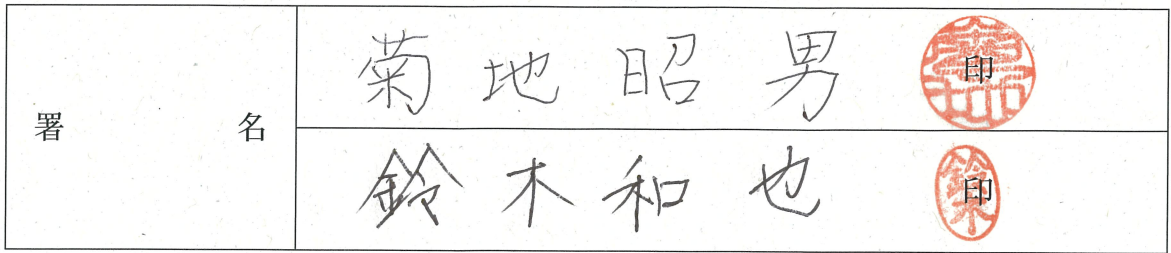 署名
菊地昭男 印
鈴木和也 印
鈴木